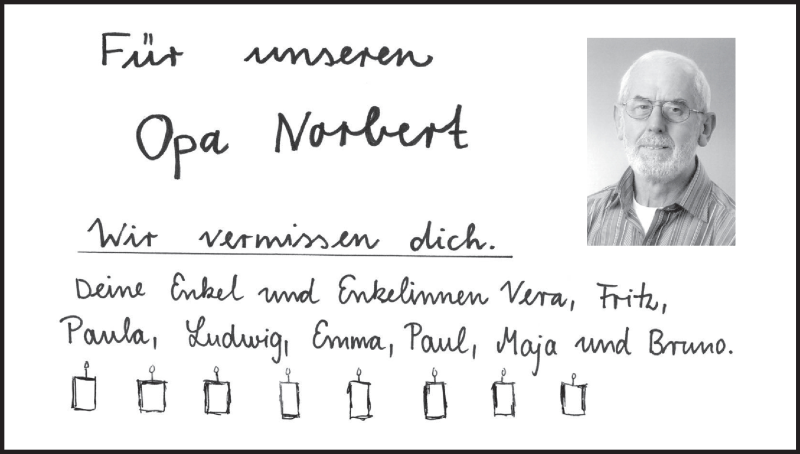 Für unseren
Opa Norbert
Wir vermissen dich.
Deine Enkel und Enkelinnen Vera, Fritz,
Paula, Ludwig, Emma, Paul, Maja und Bruno.